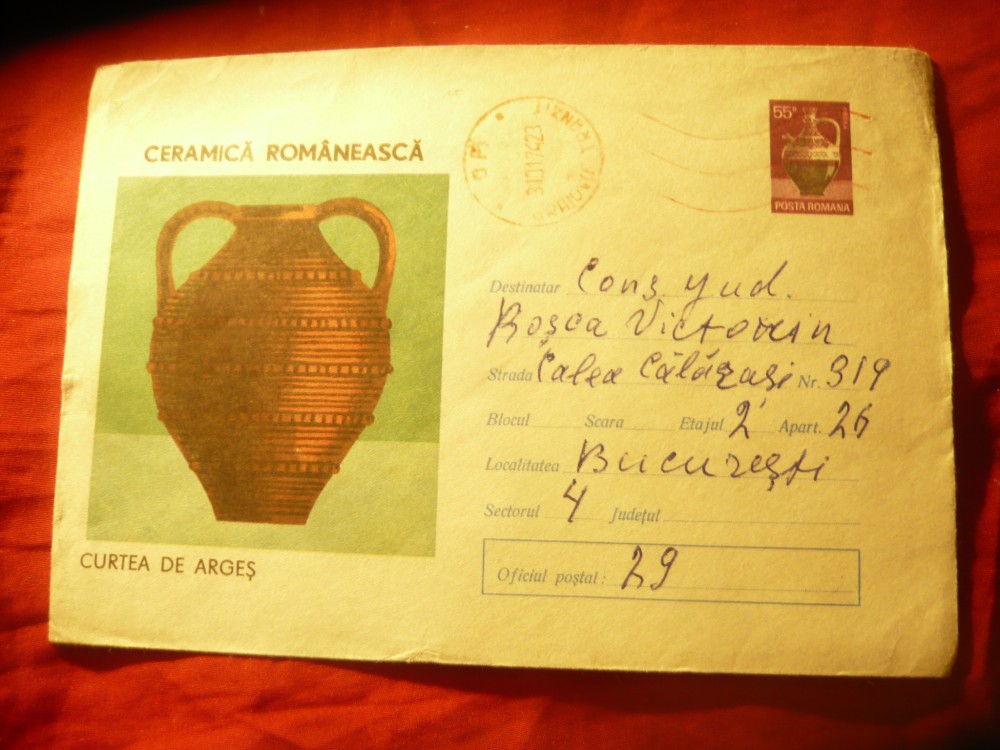 CERAMICĂ ROMÂNEASCĂ
CURTEA DE ARGEȘ
55 B
POSTA ROMANA
Destinatar Cons. jud.
Roșca Victorin
Strada Calea Călărași Nr. 319
Blocul Scara Etajul 2 Apart. 26
Localitatea București
Sectorul 4 Județul
Oficiul poștal: 29